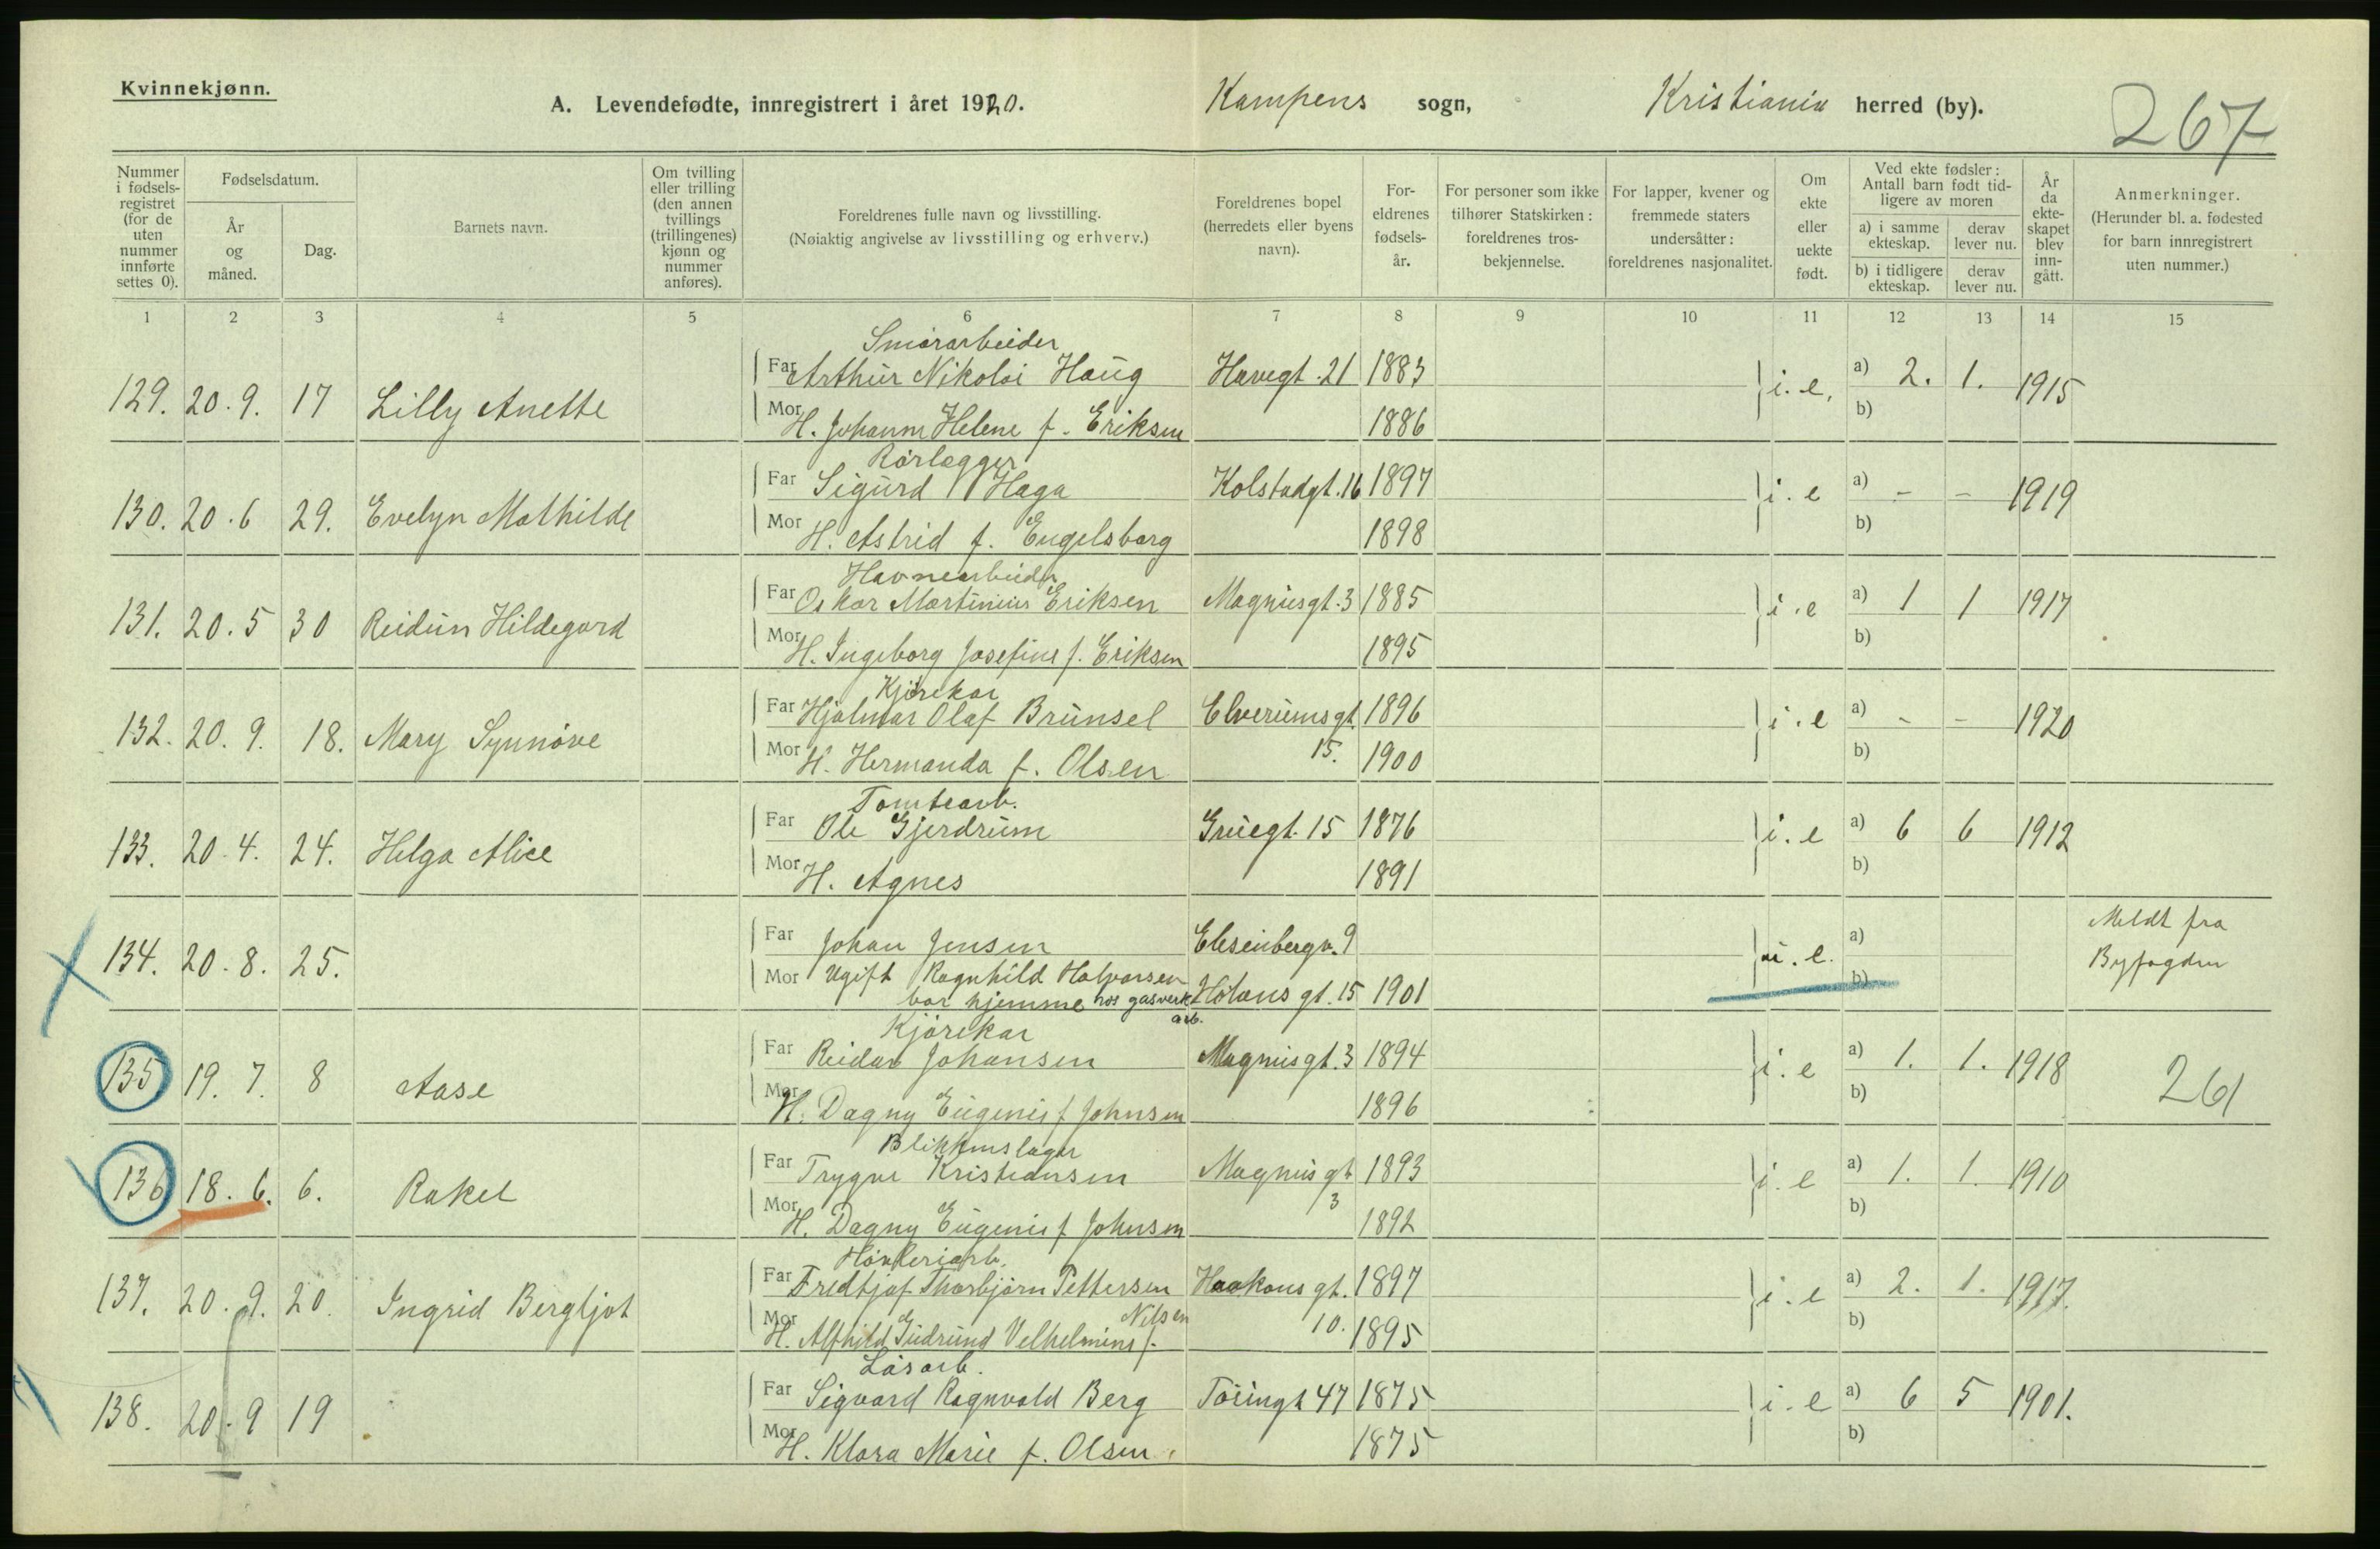 Kvinnekjønn.
A. Levendefødte, innregistrert i året 1920. Kampens sogn, Kristiania herred (by).
267
Nummer i fødselsregistret (for de uten nummer innførte settes 0).
Fødselsdatum.
År og måned.
Dag.
Barnets navn.
Om tvilling eller trilling (den annen tvillings (trillingenes) kjønn og nummer anføres).
Foreldrenes fulle navn og livsstilling.
(Nøiaktig angivelse av livsstilling og erhverv.)
Foreldrenes bopel (herredets eller byens navn).
Foreldrenes fødselsår.
For personer som ikke tilhører Statskirken: foreldrenes trosbekjennelse.
For lapper, kvener og fremmede staters undersåtter: foreldrenes nasjonalitet.
Om ekte eller uekte født.
Ved ekte fødsler: Antall barn født tidligere av moren
a) i samme ekteskap. derav lever nu.
b) i tidligere ekteskap. derav lever nu.
År da ekteskapet blev inngått.
Anmerkninger.
(Herunder bl. a. fødested for barn innregistrert uten nummer.)
1 2 3 4 5 6 7 8 9 10 11 12 13 14 15
Smörarbeider
Far Arthur Nikolai Haug Havegt. 21 1883
129. 20. 9. 17 Lilly Anette i. e. a) 2. 1. 1915
b)
Mor H. Johanne Helene f. Eriksen 1886
Rörlegger
Far Sigurd Haga Kolstadgt. 16 1897
130. 20. 6 29. Evelyn Mathilde i. e a) - - 1919
b)
Mor H. Astrid f. Engelsborg 1898
Havnearbeider
Far Oskar Martinius Eriksen Magnusgt. 3 1885
131. 20. 5 30 Reidun Hildegard i. e a) 1 1 1917
b)
Mor H. Ingeborg Josefine f. Eriksen 1895
Kjörekar
Far Hjalmar Olaf Brunsel Elverumsgt. 1896
132. 20. 9. 18. Mary Synnöve i. e a) - - 1920
b)
Mor H. Hermanda f. Olsen 15. 1900
Tomtearb.
Far Ole Gjerdrum Gruegt. 15 1876
133. 20. 4. 24. Helga Alice i. e a) 6 6 1912
b)
Mor H. Agnes 1891
Far Johan Jensen Elisenbergv. 9
134. 20. 8. 25. u. e. a)
b)
Meldt fra
Byfogden
Mor Ugift Ragnhild Halvorsen
bor hjemme hos gasverk arb. Hölans gt. 15 1901
Kjörekar
Far Reidar Johansen Magnusgt. 3 1894
135 19. 7. 8 Aase i. e a) 1. 1. 1918 261
b)
Mor H. Dagny Eugenie f Johnsen 1896
Blikkenslager
Far Trygve Kristiansen Magnus gt 1893
136 18. 6. 6. Rakel i. e a) 1. 1. 1910
b)
Mor H. Dagny Eugenie f Johnsen 3 1892
Far Fredtjof Thorbjörn Pettersen Haakons gt. 1897
137. 20. 9. 20. Ingrid Bergljot i. e a) 2. 1. 1917.
b)
Nilsen
Mor H. Alfhild Gudrund Velhelmine f. 10. 1895
Låsarb.
Far Sigvard Ragnvald Berg Töiengt 47 1875
138. 20. 9 19 i. e a) 6 5 1901.
b)
Mor H. Klara Marie f. Olsen 1875